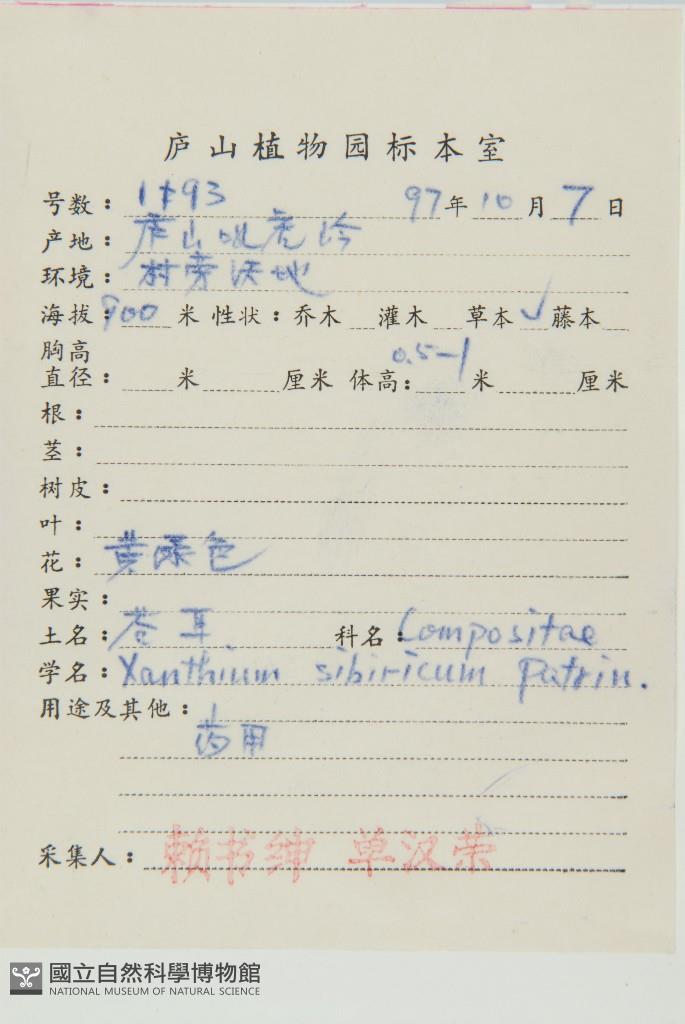 庐山植物园标本室
号数： 97年10月7日
产地：庐山
环境：村旁
海拔：900米 性状：乔木 灌木 草本✓ 藤本
胸高
直径： 米 厘米 体高：0.5-1米 厘米
根：
茎：
树皮：
叶：
花：黄绿色
果实：
土名：苍耳 科名：Compositae
学名：Xanthium sibiricum Patrin.
用途及其他：
药用
采集人：赖书绅 单汉荣
國立自然科學博物館
NATIONAL MUSEUM OF NATURAL SCIENCE